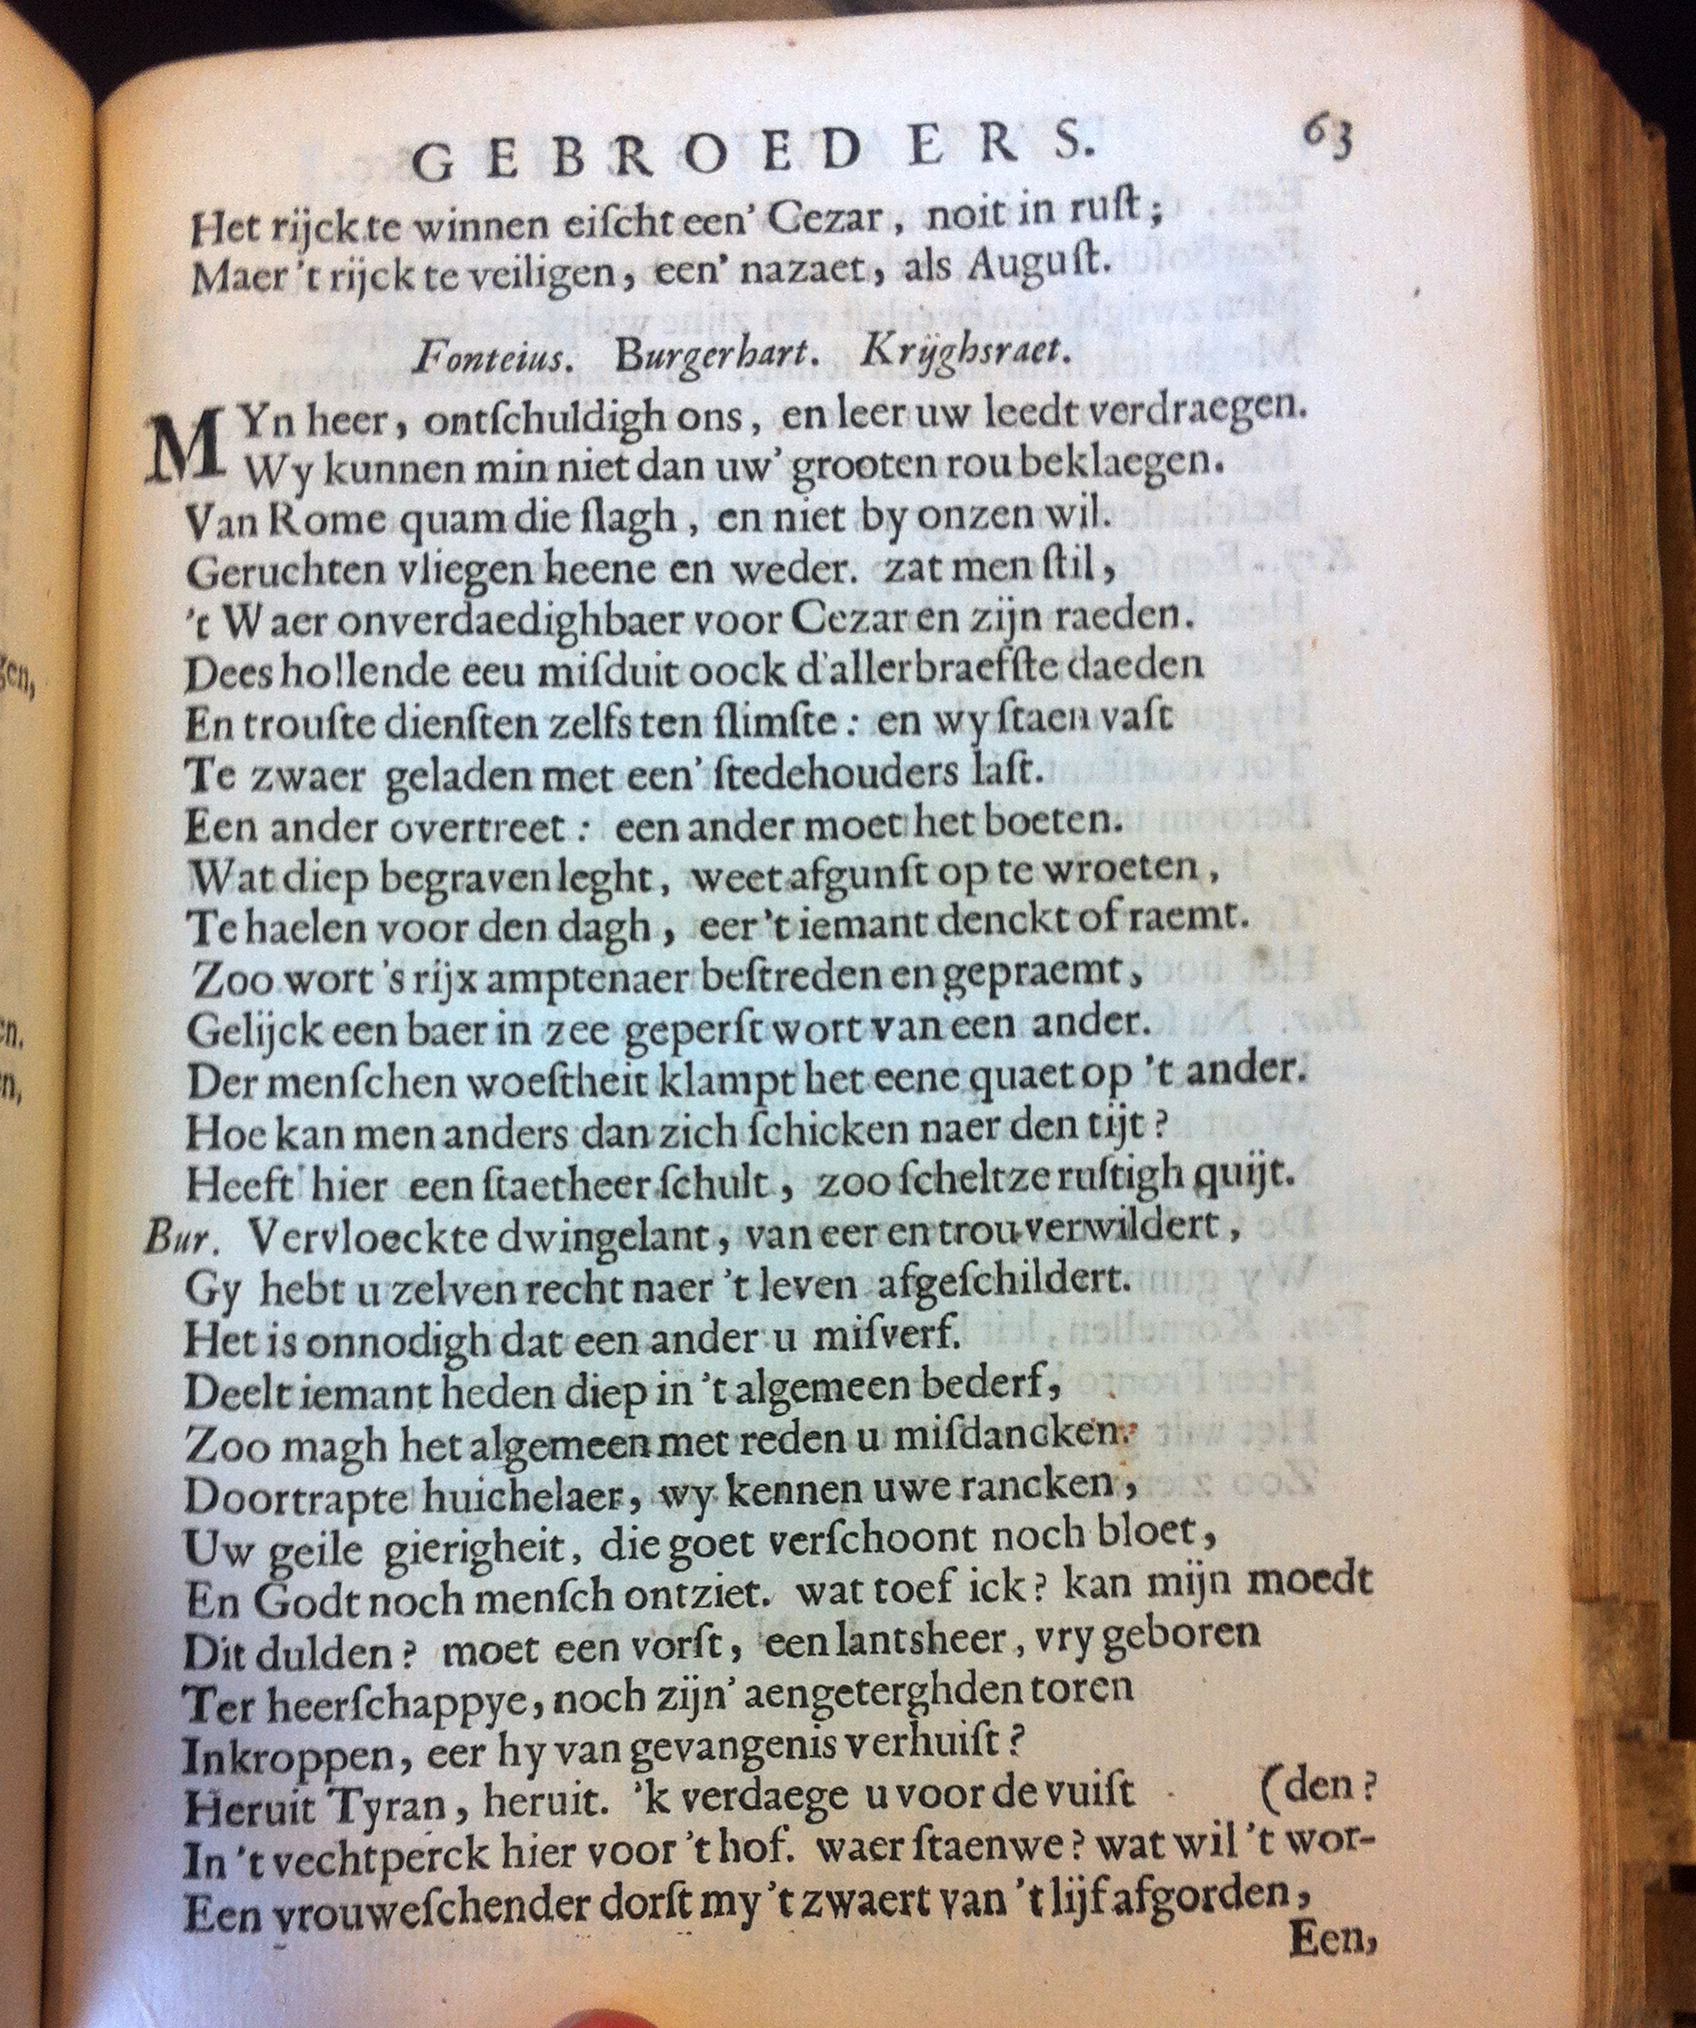 GEBROEDERS. 63
Het rijck te winnen eiſcht een' Cezar, noit in ruſt;
Maer 't rijck te veiligen, een' nazaet, als Auguſt.
Fonteius. Burgerhart. Krijghsraet.
MYn heer, ontſchuldigh ons, en leer uw leedt verdraegen.
Wy kunnen min niet dan uw' grooten rou beklaegen.
Van Rome quam die ſlagh, en niet by onzen wil.
Geruchten vliegen heene en weder. zat men ſtil,
't Waer onverdaedighbaer voor Cezar en zijn raeden.
Dees hollende eeu miſduit oock d'allerbraefſte daeden
En trouſte dienſten zelfs ten ſlimſte: en wy ſtaen vaſt
Te zwaer geladen met een' ſtedehouders laſt.
Een ander overtreet: een ander moet het boeten.
Wat diep begraven leght, weet afgunſt op te wroeten,
Te haelen voor den dagh, eer 't iemant denckt of raemt.
Zoo wort 's rijx amptenaer beſtreden en gepraemt,
Gelijck een baer in zee geperſt wort van een ander.
Der menſchen woeſtheit klampt het eene quaet op 't ander.
Hoe kan men anders dan zich ſchicken naer den tijt?
Heeft hier een ſtaetheer ſchult, zoo ſcheltze ruſtigh quijt.
Bur. Vervloeckte dwingelant, van eer en trou verwildert,
Gy hebt u zelven recht naer 't leven afgeſchildert.
Het is onnodigh dat een ander u miſverf.
Deelt iemant heden diep in 't algemeen bederf,
Zoo magh het algemeen met reden u miſdancken.
Doortrapte huichelaer, wy kennen uwe rancken,
Uw geile gierigheit, die goet verſchoont noch bloet,
En Godt noch menſch ontziet. wat toef ick? kan mijn moedt
Dit dulden? moet een vorſt, een lantsheer, vry geboren
Ter heerſchappye, noch zijn' aengeterghden toren
Inkroppen, eer hy van gevangenis verhuiſt?
Heruit Tyran, heruit. 'k verdaege u voor de vuiſt (den?
In 't vechtperck hier voor 't hof. waer ſtaenwe? wat wil 't wor-
Een vrouweſchender dorſt my 't zwaert van 't lijf afgorden,
Een,